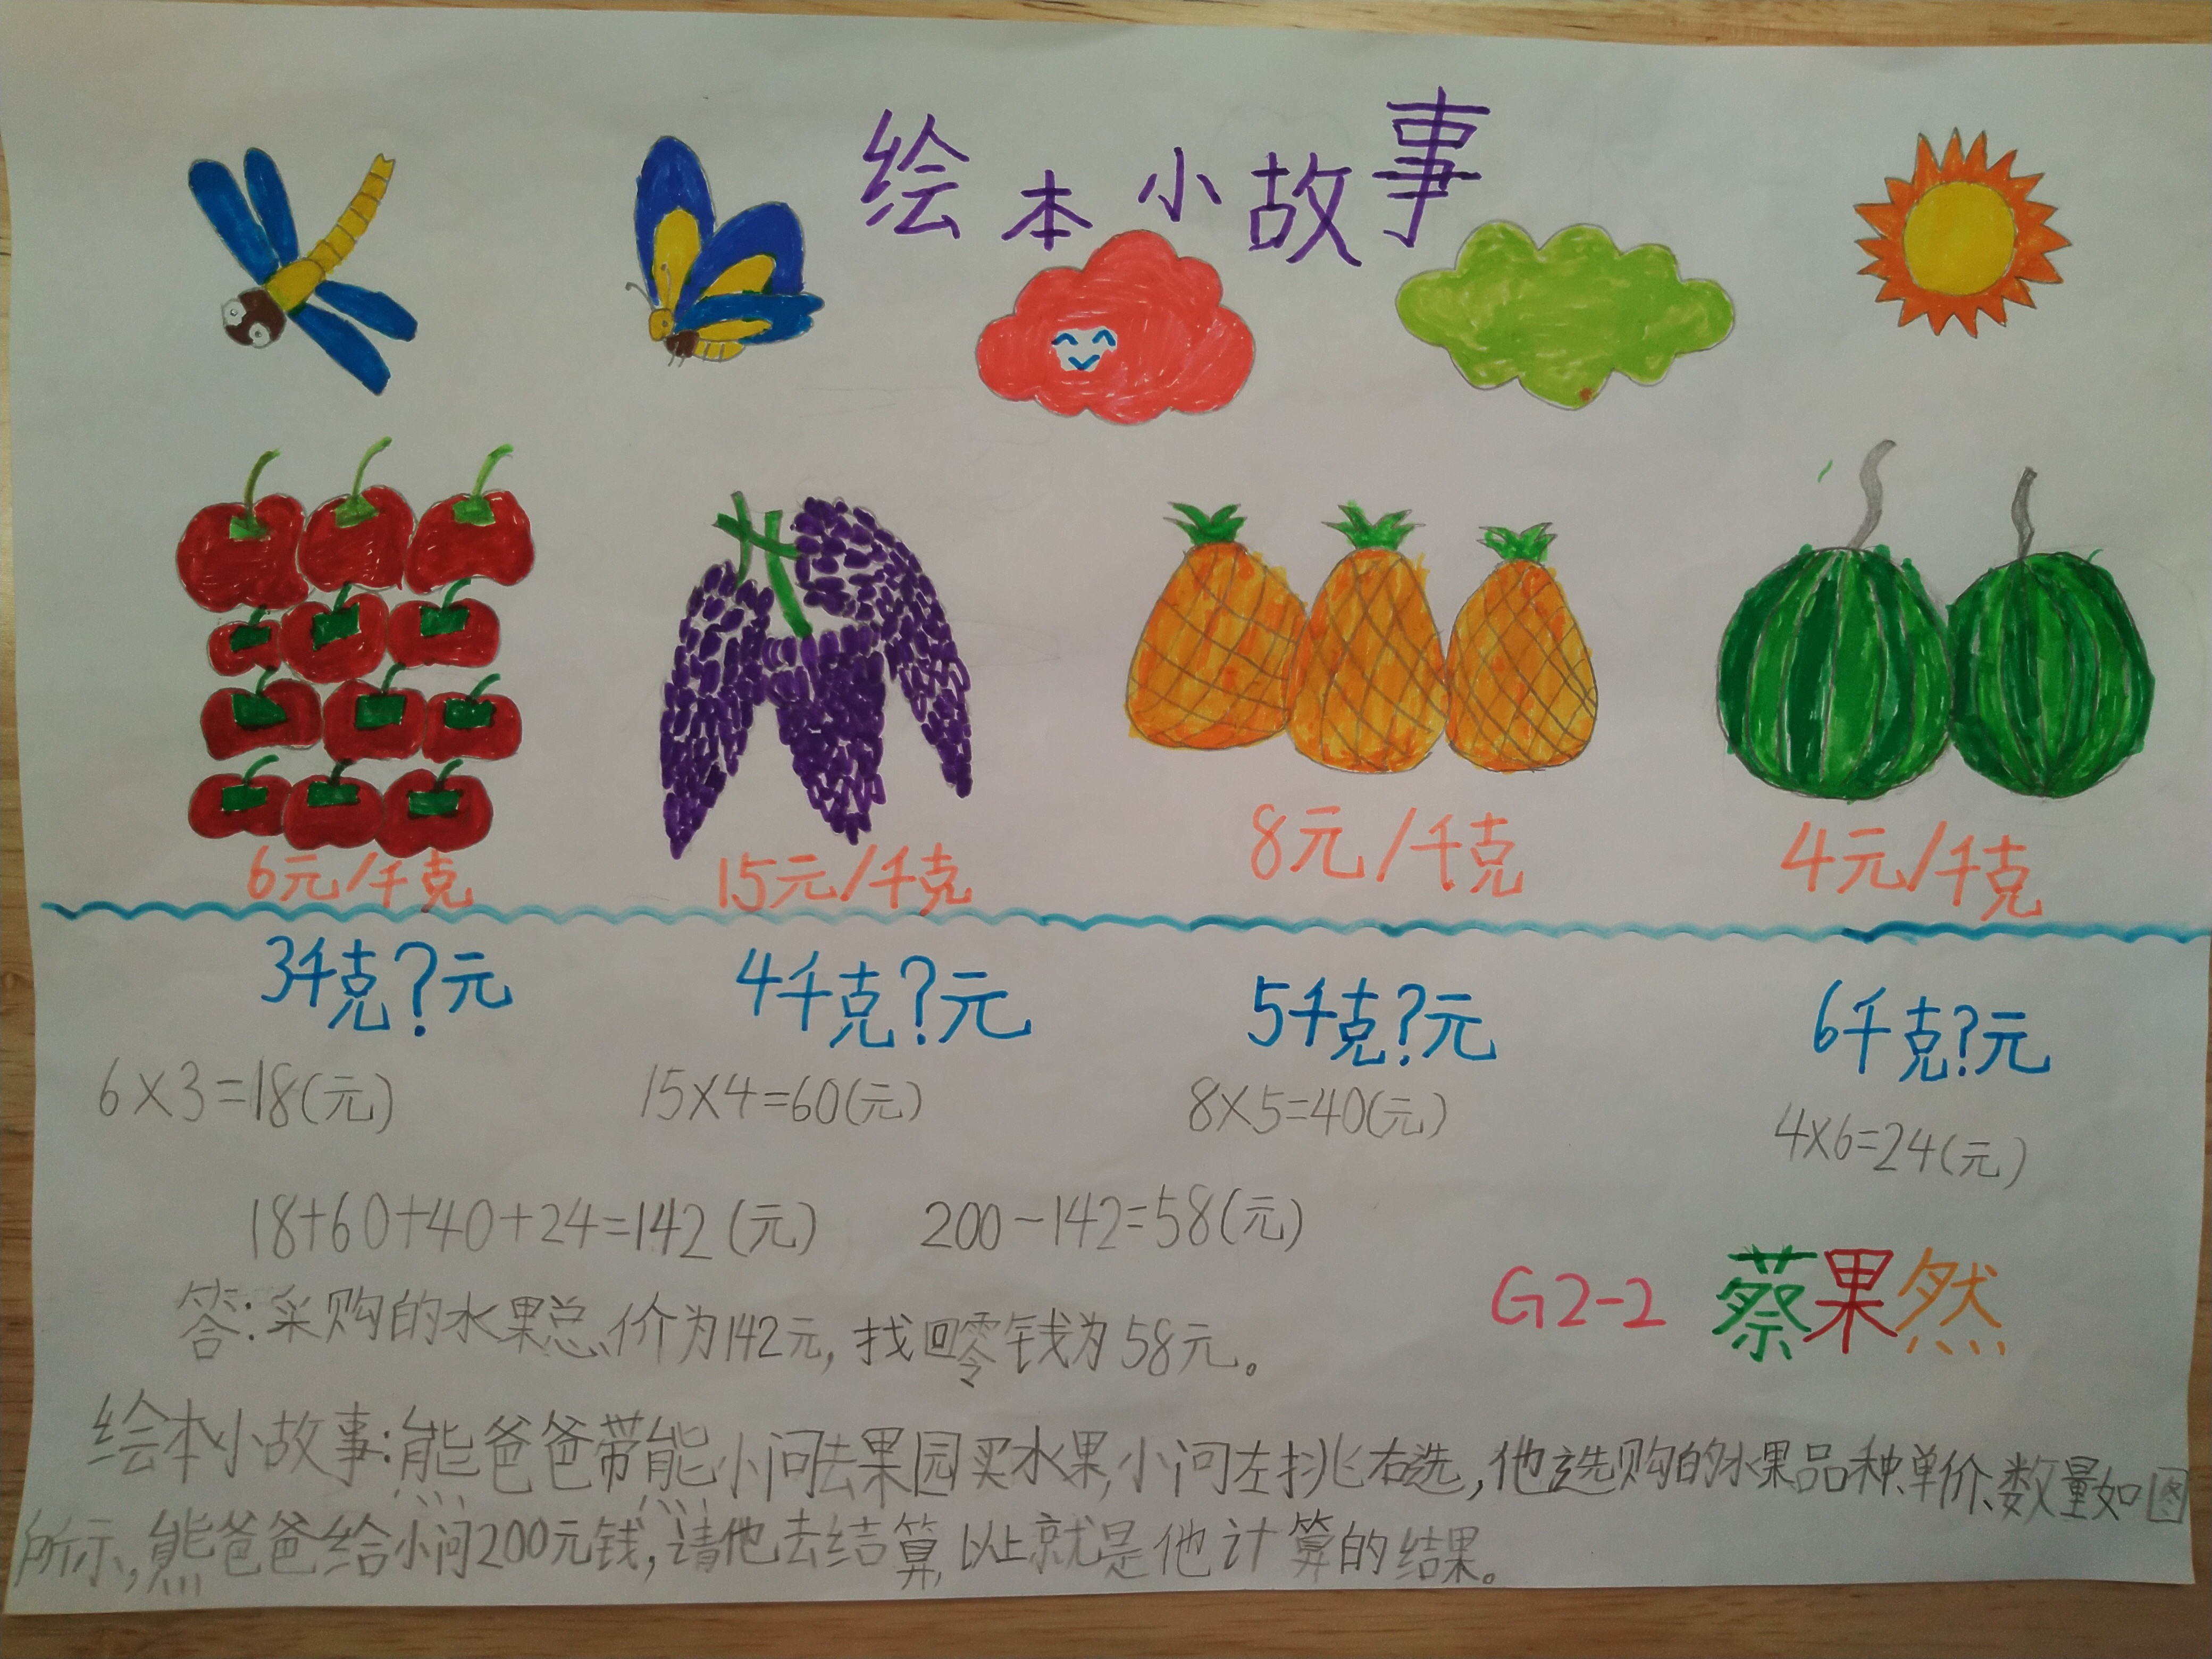 绘本小故事
6元/千克 15元/千克 8元/千克 4元/千克
3千克?元 4千克?元 5千克?元 6千克?元
6×3=18(元) 15×4=60(元) 8×5=40(元) 4×6=24(元)
18+60+40+24=142(元) 200-142=58(元)
G2-2 蔡果然
答:采购的水果总价为142元,找回零钱为58元。
绘本小故事:熊爸爸带熊小问去果园买水果,小问左挑右选,他选购的水果品种、单价、数量如图
所示,熊爸爸给小问200元钱,请他去结算,以上就是他计算的结果。